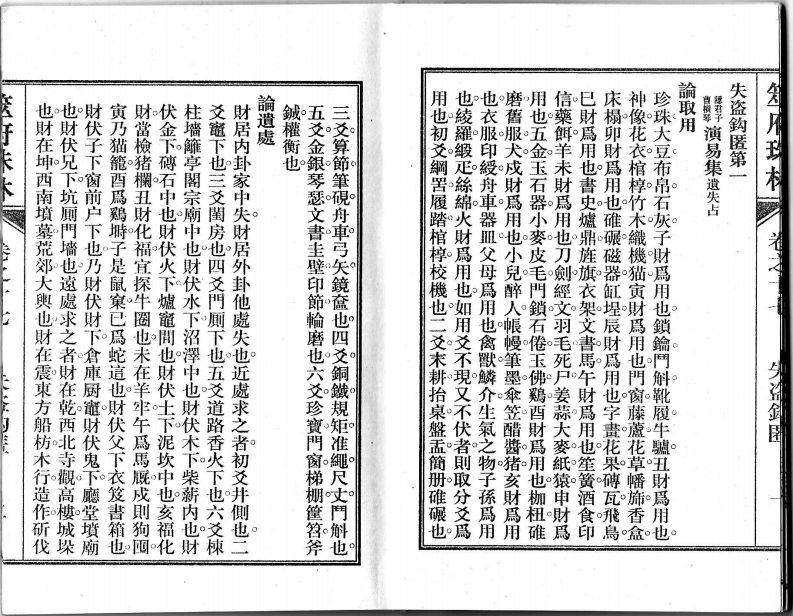 筮府珠林
卷之十七
失盜鈎匿
一
失盜鈎匿第一
隱君子
曹橫琴
演易集遺失占
論取用
珍珠大豆布帛石灰子財爲用也鎖鑰鬥斛靴履牛驢丑財爲用也
神像花衣棺椁竹木織機猫寅財爲用也門窗藤蘆花草幡旆香盒
床榻卯財爲用也碓碾磁器缸埕辰財爲用也字畫花果磚瓦飛鳥
巳財爲用也書史爐鼎旌旗衣架文書馬午財爲用也笙簧酒食印
信藥餌羊未財爲用也刀劍經文羽毛死尸姜蒜大麥紙猿申財爲
用也五金玉石器小麥皮毛門鎖石倦玉佛鷄酉財爲用也枷杻碓
磨舊服犬戍財爲用也小兒醉人帳幔筆墨傘笠醋醬猪亥財爲用
也衣服印綬舟車器皿父母爲用也禽獸鱗介生氣之物子孫爲用
也綾羅緞疋絲綿火財爲用也如用爻不現又不伏者則取分爻爲
用也初爻綱罟履踏棺椁校機也二爻耒耕抬桌盤盂簡册碓碾也
三爻算節筆硯舟車弓矢鏡奩也四爻銅鐵規矩准繩尺丈鬥斛也
五爻金銀琴瑟文書圭璧印節輪磨也六爻珍寶門窗梯棚筐笤斧
鉞權衡也
論遺處
財居内卦家中失財居外卦他處失也近處求之者初爻井側也二
爻竈下也三爻閨房也四爻門厠下也五爻道路香火下也六爻棟
柱墻籬亭閣宗廟中也財伏水下沼澤中也財伏木下柴薪内也財
伏金下磚石中也財伏火下爐竈間也財伏土下泥坎中也亥福化
財當檢猪欄丑財化福宜探牛圈也未在羊牢午爲馬厩戍則狗囤
寅乃猫籠酉爲鷄塒子是鼠窠巳爲蛇這也財伏父下衣笈書箱也
財伏子下窗前户下也乃財伏財下倉庫厨竈財伏鬼下廳堂墳廟
也財伏兄下坑厠門墻也遠處求之者財在乾西北寺觀高樓城垛
也財在坤西南墳墓荒郊大輿也財在震東方船枋木行造作斫伐